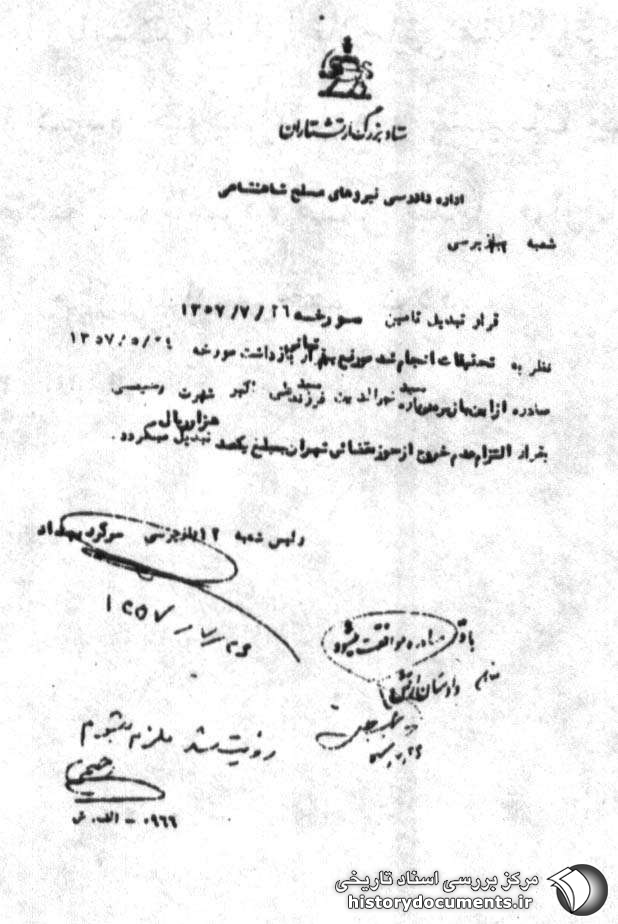 ستاد بزرگ ارتشتاران
اداره دادرسی نیروهای مسلح شاهنشاهی
شعبه بازپرسی
قرار تبدیل تامین مورخه ۱۳۵۷/۷/۲۶
نظر به تحقیقات انجام شده موقع بهم قرار بازداشت مورخه ۱۳۵۷/۵/۲۹
صادره از این بازپرسی درباره سید نورالدین فرزند سید علی اکبر شهرت رحیمی
بقرار التزام عدم خروج از حوزه قضائی تهران بمبلغ یکصد هزار ریال تبدیل میگردد.
رئیس شعبه ۱۲ بازپرسی سرگرد بهداد
۱۳۵۷/۷/۲۶
با قرار صادره موافقت میشود
دادستان ارتش
رؤیت شد ملزم میشوم
رحیمی
۰۹۶۶ - الف. ش
مرکز بررسی اسناد تاریخی
historydocuments.ir